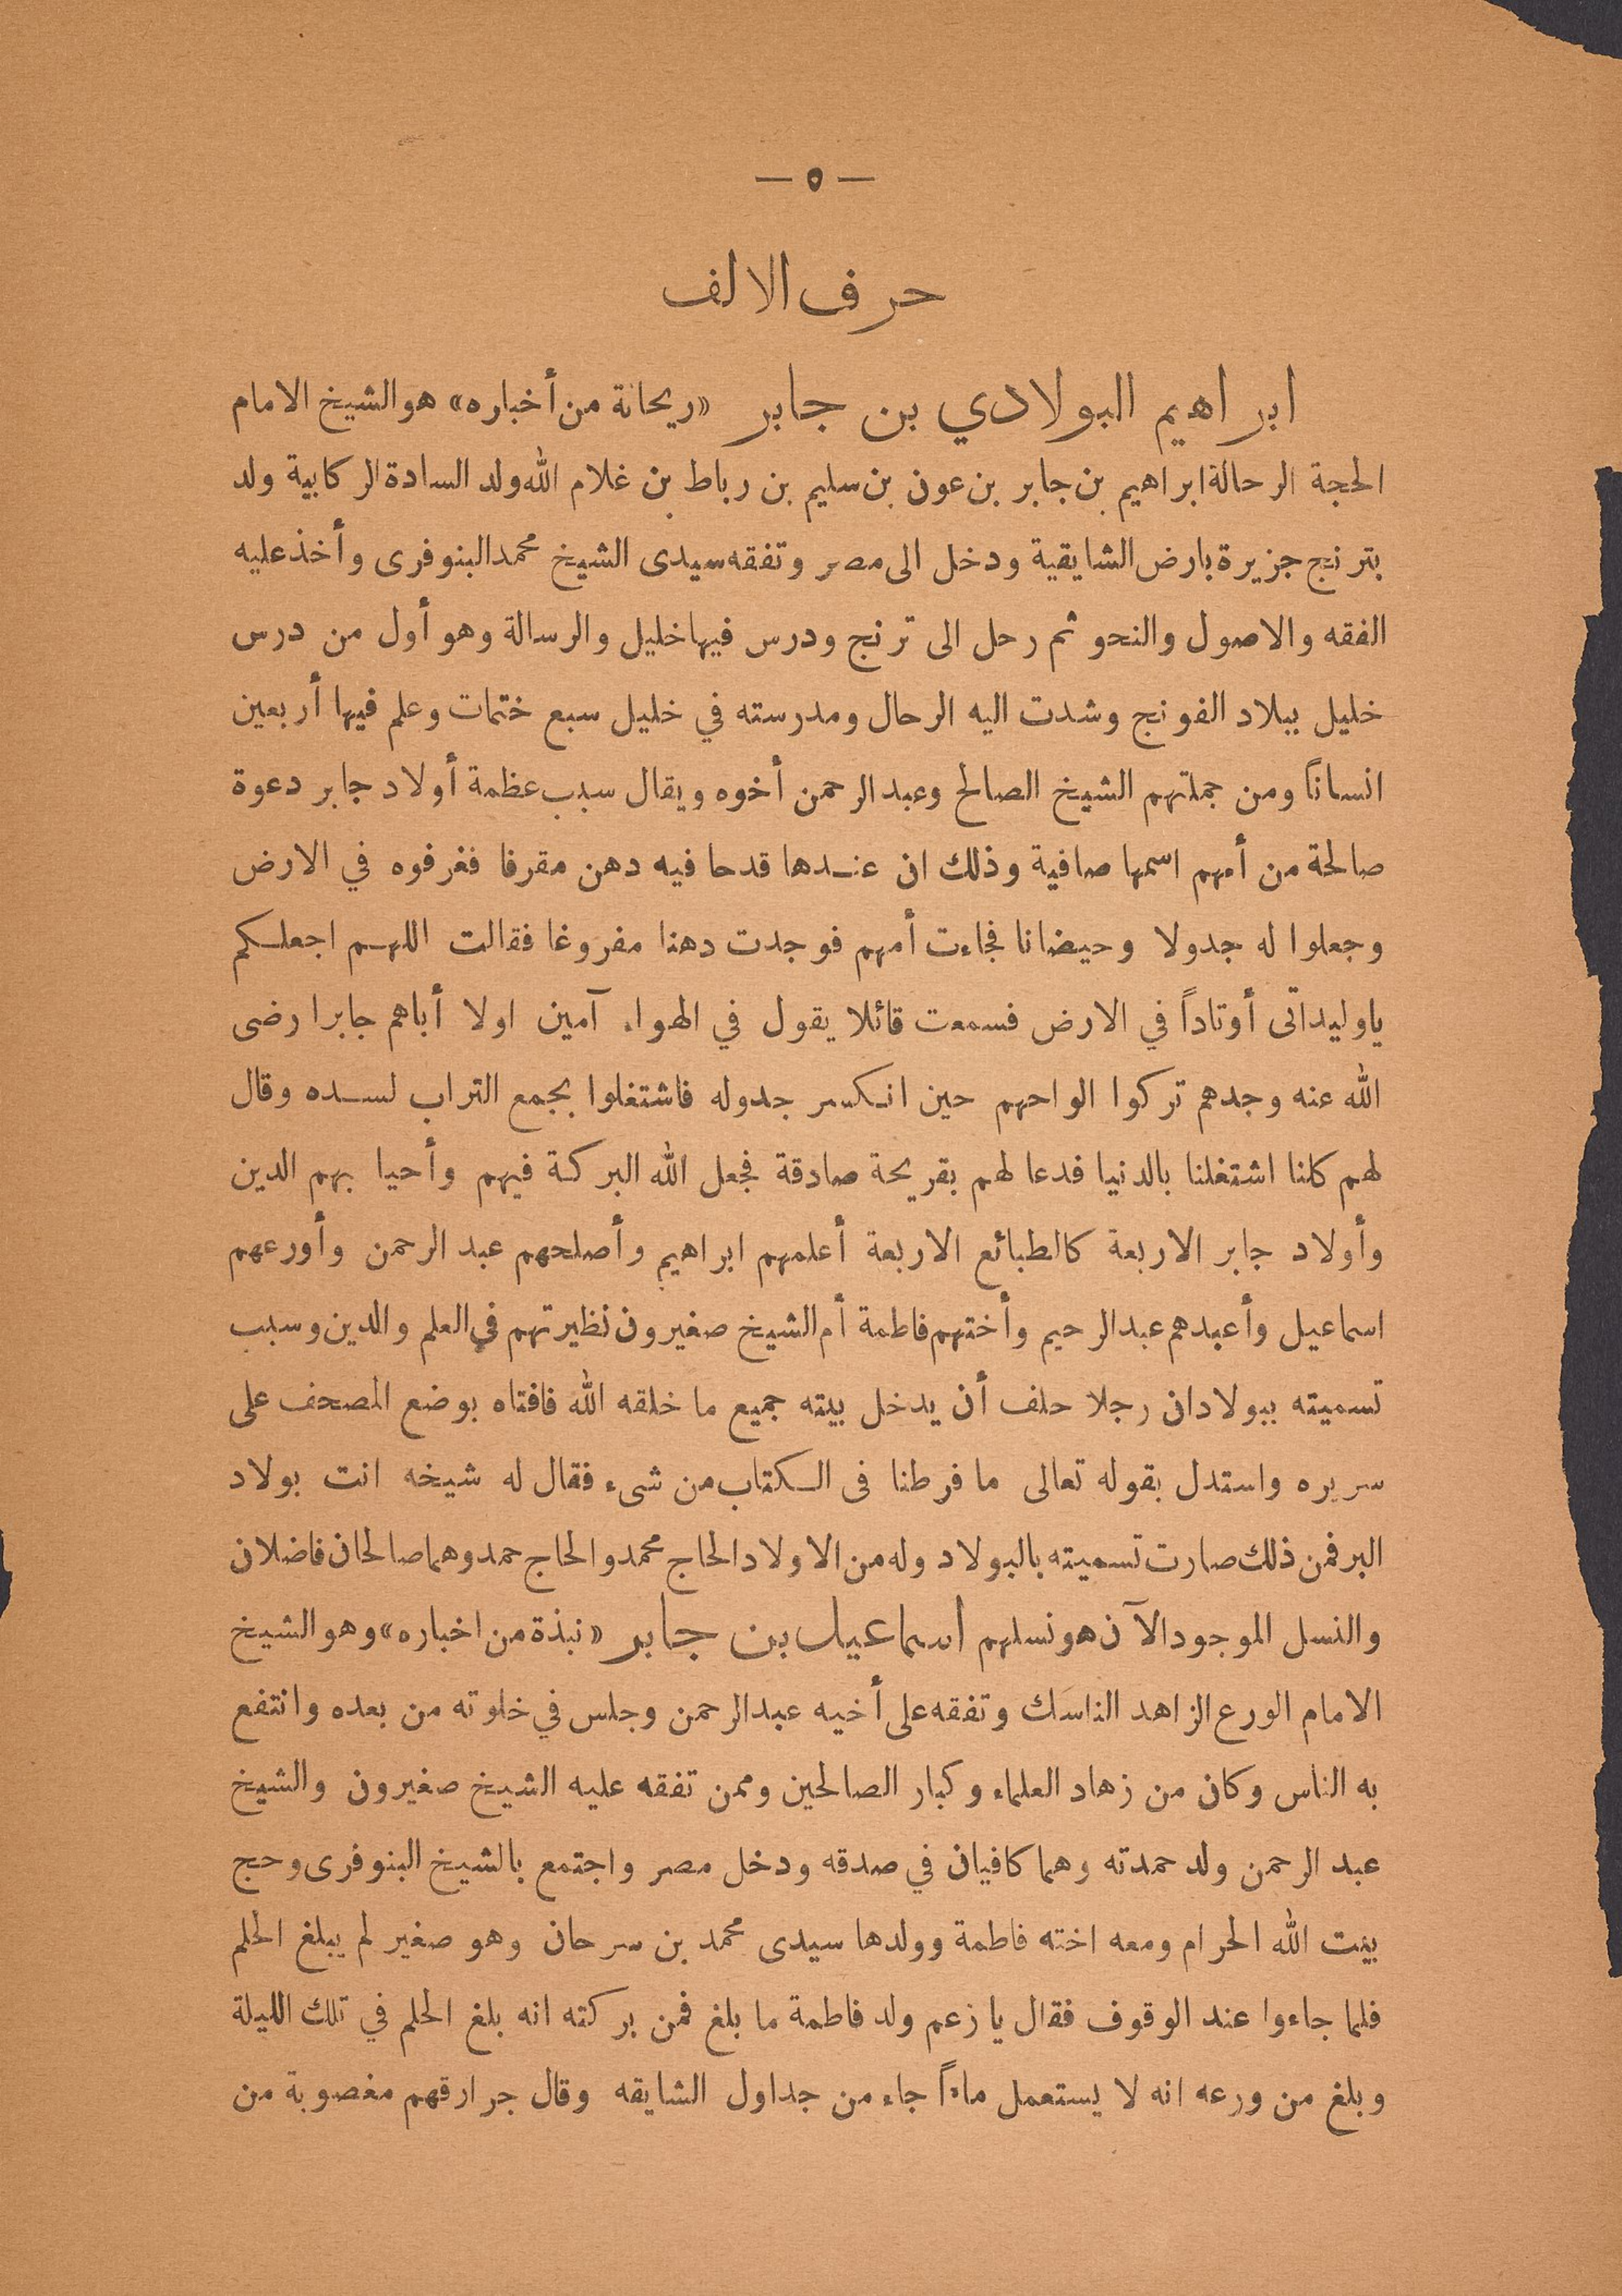 — ٥ —
حرف الالف
ابراهيم البولادي بن جابر «ريحانة من أخباره» هو الشيخ الامام
الحجة الرحالة ابراهيم بن جابر بن عون بن سليم بن رباط بن غلام الله ولد السادة الركابية ولد
بترنج جزيرة بارض الشايقية ودخل الى مصر وتفقه سيدى الشيخ محمد البنوفرى وأخذ عليه
الفقه والاصول والنحو ثم رحل الى ترنج ودرس فيها خليل والرسالة وهو أول من درس
خليل ببلاد الفونج وشدت اليه الرحال ومدرسته في خليل سبع ختمات وعلم فيها أربعين
انساناً ومن جملتهم الشيخ الصالح وعبد الرحمن أخوه ويقال سبب عظمة أولاد جابر دعوة
صالحة من أمهم اسمها صافية وذلك ان عندها قدحا فيه دهن مقرفا فغرفوه في الارض
وجعلوا له جدولا وحيضانا فجاءت أمهم فوجدت دهنا مفروغا فقالت اللهم اجعلكم
ياوليداتى أوتاداً في الارض فسمعت قائلا يقول في الهواء آمين اولا أباهم جابرا رضى
الله عنه وجدهم تركوا الواحهم حين انكسر جدوله فاشتغلوا بجمع التراب لسده وقال
لهم كلنا اشتغلنا بالدنيا فدعا لهم بقريحة صادقة فجعل الله البركة فيهم وأحيا بهم الدين
وأولاد جابر الاربعة كالطبائع الاربعة أعلمهم ابراهيم وأصلحهم عبد الرحمن وأورعهم
اسماعيل وأعبدهم عبد الرحيم وأختهم فاطمة أم الشيخ صغيرون نظيرتهم في العلم والدين وسبب
تسميته ببولادان رجلا حلف أن يدخل بيته جميع ما خلقه الله فافتاه بوضع المصحف على
سريره واستدل بقوله تعالى ما فرطنا فى الكتاب من شىء فقال له شيخه انت بولاد
البر فمن ذلك صارت تسميته بالبولاد وله من الاولاد الحاج محمد والحاج حمد وهما صالحان فاضلان
والنسل الموجود الآن هو نسلهم اسماعيل بن جابر «نبذة من اخباره» وهو الشيخ
الامام الورع الزاهد الناسك وتفقه على أخيه عبد الرحمن وجلس في خلوته من بعده وانتفع
به الناس وكان من زهاد العلماء وكبار الصالحين وممن تفقه عليه الشيخ صغيرون والشيخ
عبد الرحمن ولد حمدته وهما كافيان في صدقه ودخل مصر واجتمع بالشيخ البنوفرى وحج
بيت الله الحرام ومعه اخته فاطمة وولدها سيدى محمد بن سرحان وهو صغير لم يبلغ الحلم
فلما جاءوا عند الوقوف فقال يا زعم ولد فاطمة ما بلغ فمن بركته انه بلغ الحلم في تلك الليلة
وبلغ من ورعه انه لا يستعمل ماءاً جاء من جداول الشايقه وقال جرارقهم مغصوبة من